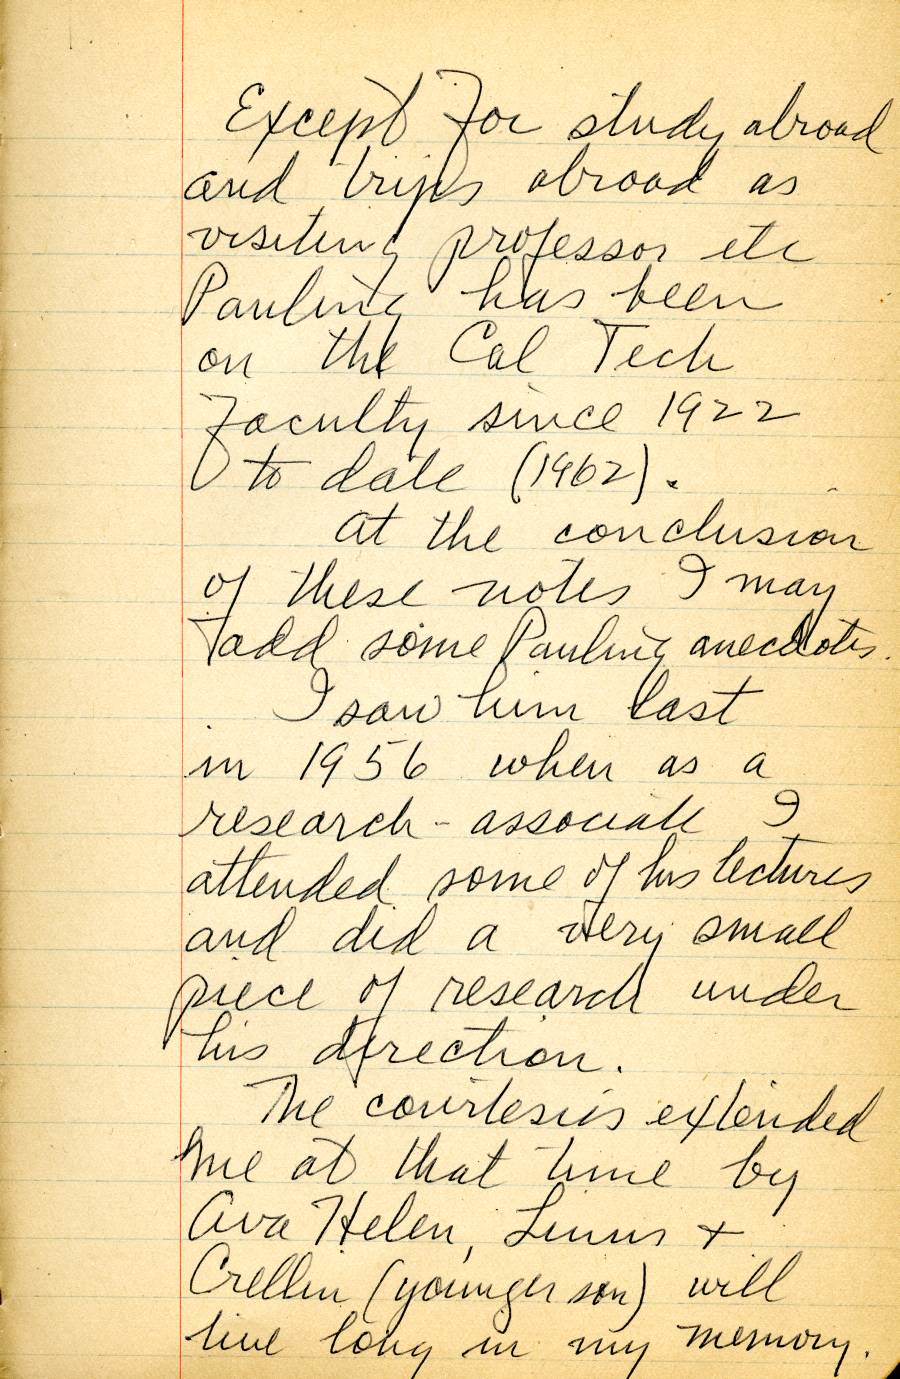 Except for study abroad
and trips abroad as
visiting professor etc
Pauling has been
on the Cal Tech
Faculty since 1922
to date (1962).
At the conclusion
of these notes I may
add some Pauling anecdotes.
I saw him last
in 1956 when as a
research-associate I
attended some of his lectures
and did a very small
piece of research under
his direction.
The courtesies extended
me at that time by
Ava Helen, Linus +
Crellin (younger son) will
live long in my memory.